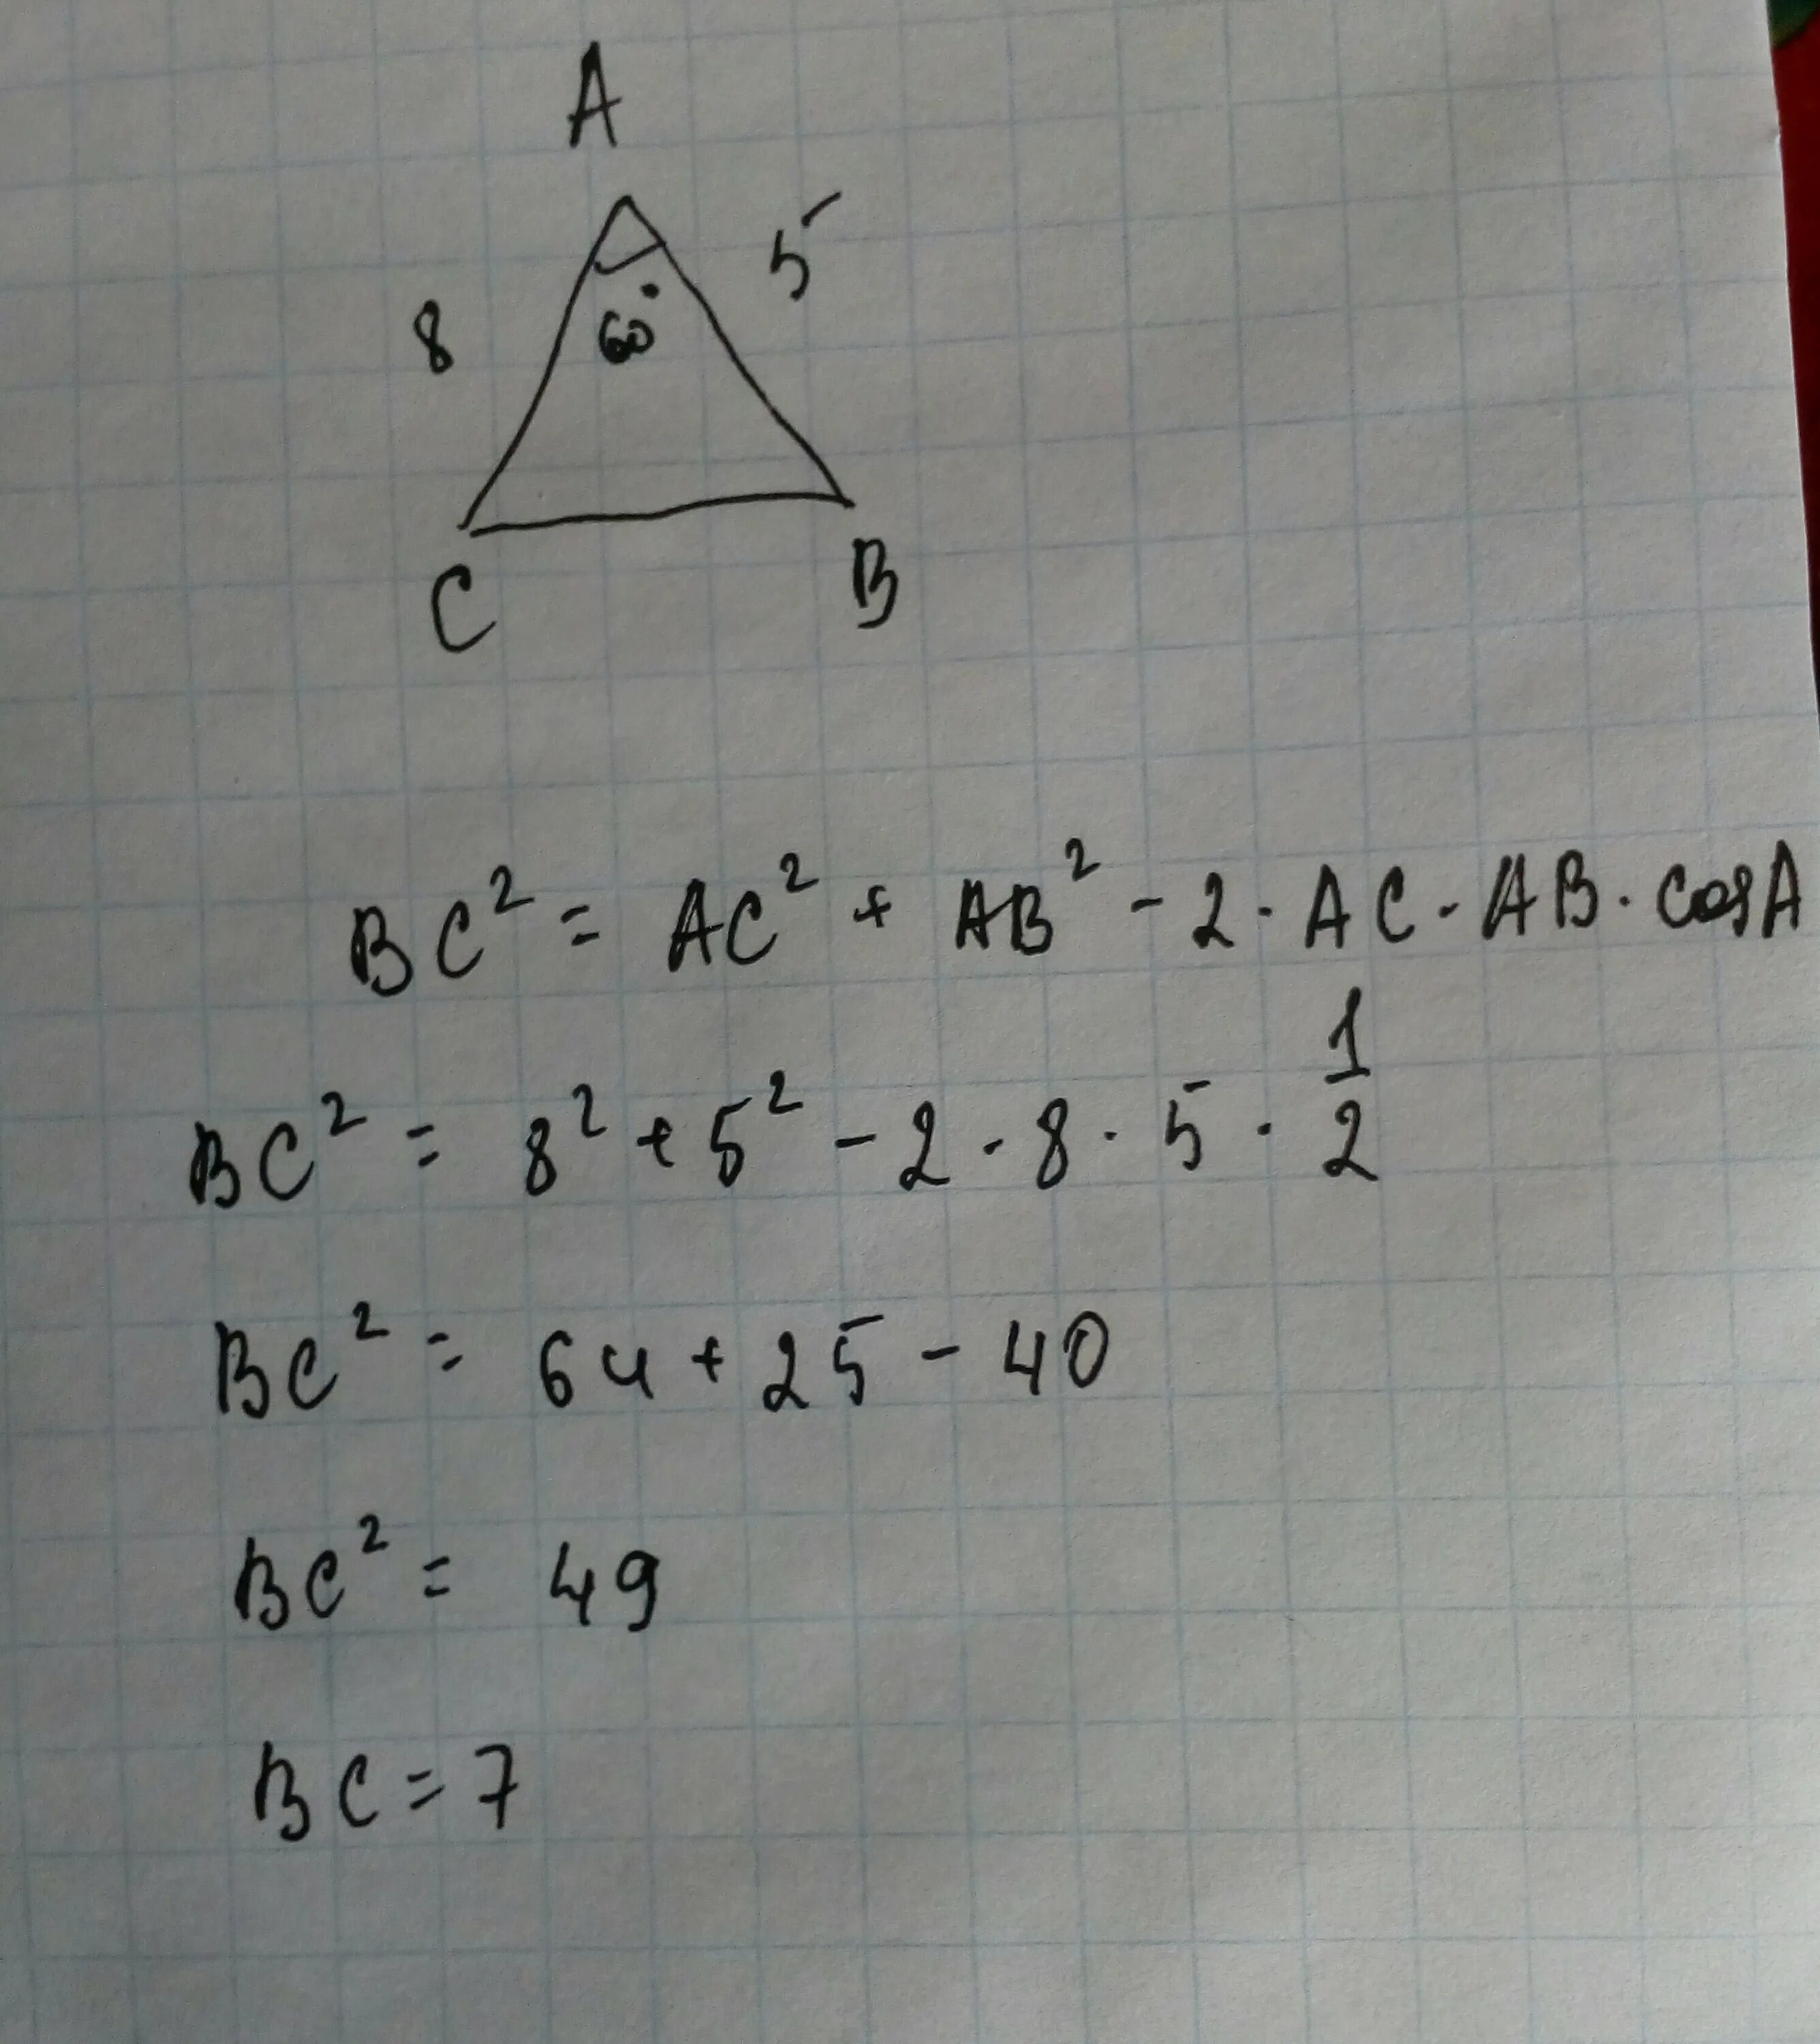 A
8 5
60°
C B
BC² = AC² + AB² - 2 · AC · AB · cos A
BC² = 8² + 5² - 2 · 8 · 5 · 1/2
BC² = 64 + 25 - 40
BC² = 49
BC = 7